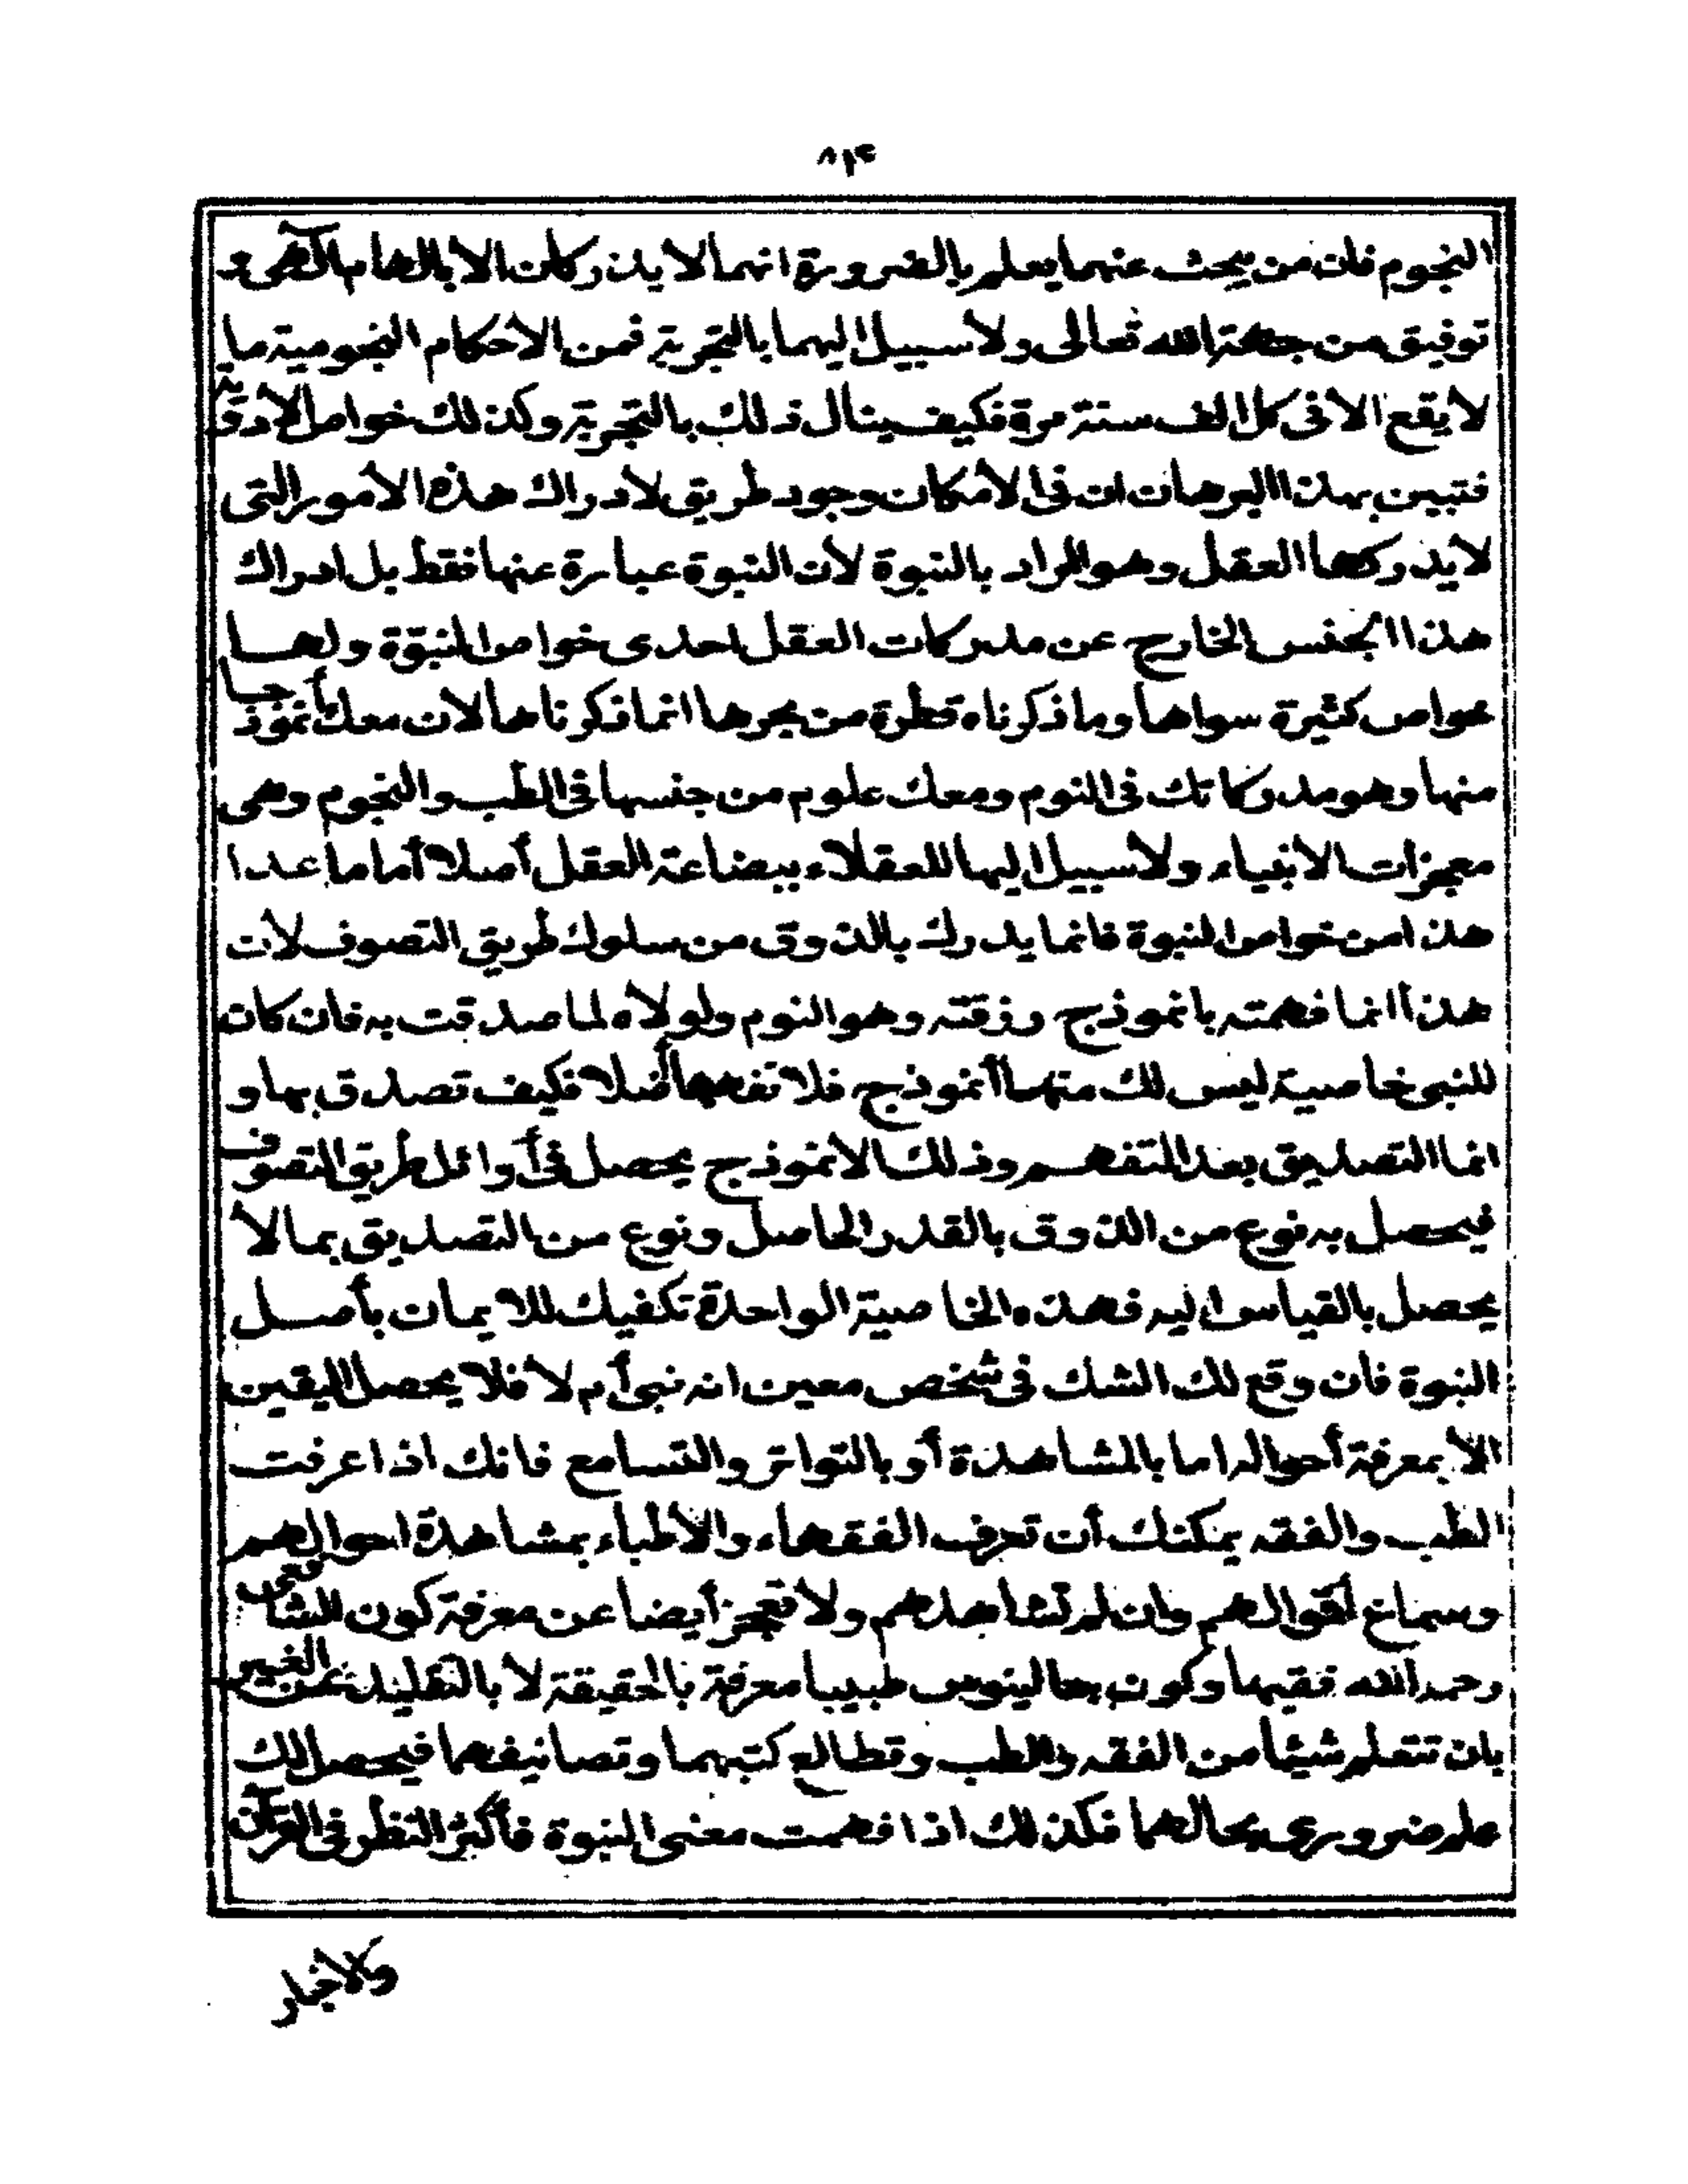 ٨١٤
النجوم فان من يبحث عنهما يعلم بالضرورة انهما لا يدركان الا بالهام الٓهى و
توفيق من جهة الله تعالى ولا سبيل اليهما بالتجربة فمن الأحكام النجومية ما
لا يقع الا فى كل الف سنة مرة فكيف ينال ذلك بالتجربة وكذلك خواص الأدوية
فتبين بهذا البرهان ان فى الأمكان وجود طريق لأدراك هذه الأمور التى
لا يدركها العقل وهو المراد بالنبوة لأن النبوة عبارة عنها فقط بل ادراك
هذا الجنس الخارج عن مدركات العقل احدى خواص النبوّة ولهــا
خواص كثيرة سواها وما ذكرناه قطرة من بحرها انما ذكرناها لأن معك أنموذجا
منها وهو مدركاتك فى النوم ومعك علوم من جنسها فى الطب والنجوم وهى
معجزات الأنبياء ولا سبيل اليها للعقلاء ببضاعة العقل أصلا أما ما عدا
هذا من خواص النبوة فانما يدرك بالذوق من سلوك طريق التصوف لأن
هذا انما فهمته بانموذج رزقته وهو النوم ولولاه لما صدقت به فان كان
للنبى خاصية ليس لك منها أنموذج فلا تفهمها أصلا فكيف تصدق بها و
انما التصديق بعد التفهـم وذلك الأنموذج يحصل فى أوائل طريق التصوف
فيحصل به نوع من الذوق بالقدر الحاصل ونوع من التصديق بما لا
يحصل بالقياس اليه فهذه الخاصية الواحدة تكفيك للايمان بأصــل
النبوة فان وقع لك الشك فى شخص معين انه نبى أم لا فلا يحصل اليقين
الا بمعرفة أحواله اما بالمشاهدة أو بالتواتر والتسامع فانك اذا عرفت
الطب والفقه يمكنك أن تعرف الفقهاء والأطباء بمشاهدة احوالهم
وسماع أقوالهم وان لم تشاهدهم ولا تعجز أيضا عن معرفة كون الشافعى
رحمه الله فقيها وكون جالينوس طبيبا معرفة بالحقيقة لا بالتقليد عن الغير
بان تتعلم شيئا من الفقه والطب وتطالع كتبهما وتصانيفهما فيحصل لك
علم ضرورى بحالهما فكذلك اذا فهمت معنى النبوة فأكثر النظر فى القرآن
والأخبار